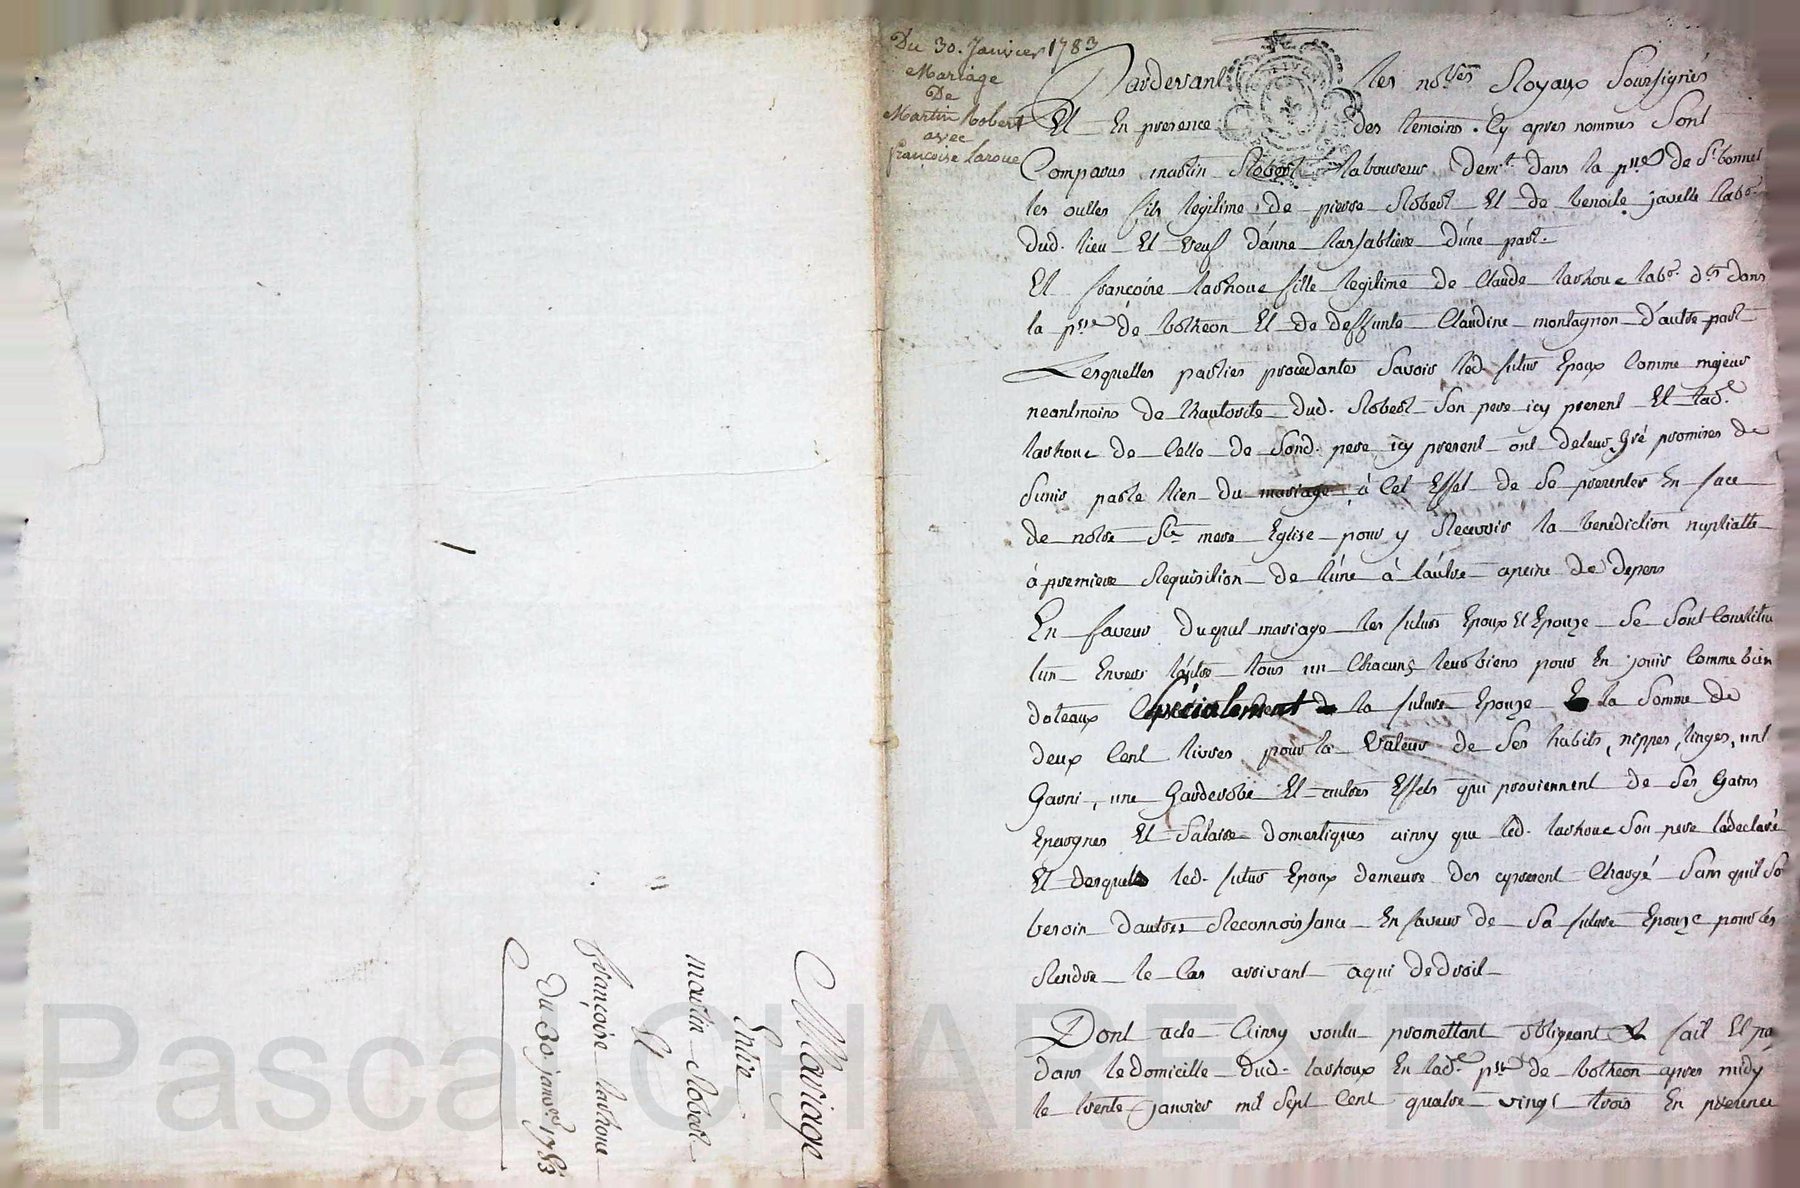 Du 30. Janvier 1783
Mariage
De
Martin Robert
avec
françoise Laroue
Pardevant les no.res Royaux Soussignés
Et En presence des temoins. Cy apres nommés Sont
Comparus martin Robert laboureur dem.t dans la p.sse de S.t bonnet
les oulles fils legitime de pierre Robert Et de benoite javelle lab.r
dud. lieu Et veuf d'anne larsabliere d'une part.
Et françoise larhoue fille legitime de Claude larhoue lab.r d.t dans
la p.sse de botheon Et de deffunte Claudine montagnon d'autre part
Lesquelles parties procedantes Savoir led. futur Epoux Comme majeur
neantmoins de l'hautorité dud. Robert Son pere icy present Et lad.e
larhoue de Celle de Sond. pere icy present ont deleur Gré promises de
Sunir par le lien du mariage à Cet Effet de Se presenter En face
de notre S.te mere Eglise pour y Recevoir la benediction nuptialle
à premiere Requisition de l'une à l'autre apeine de depens
En faveur Duquel mariage les futurs Epoux Et Epouze Se Sont Constitu
lun Envers l'autre tous un Chacuns leurs biens pour En jouir Comme bien
doteaux Spécialement la future Epouze la Somme de
deux Cent livres pour la Valeur de Ses habits, nippes, linges, unt
Garni, une Garderobe Et autres Effets qui proviennent de Ses Gains
Epargnes Et Salaire domestiques ainsy que led. larhoue Son pere ladeclaré
Et desquels led. futur Epoux demeure des apresent Chargé Sans quil So
besoin d'autres Reconnoissance En faveur de Sa future Epouze pour les
Rendre le Cas arrivant aqui dedroit
Dont acte Ainsy voulu promettant obligeant & fait Et pa
dans le domicille dud. larhoux En lad.e p.sse de botheon apres midy
le trente janvier mil Sept Cent quatre vingt trois En presence
Mariage
Entre
martin Robert
Et
françoise larhoue
Du 30. janv.er 1783
Pascal CHAREYRON